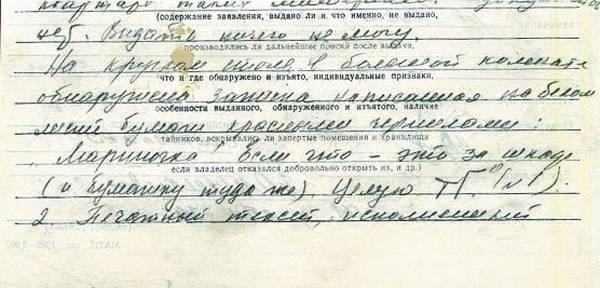 квартире таких материалов
(содержание заявления, выдано ли и что именно, не выдано,
нет. Выдать ничего не могу.
производились ли дальнейшие поиски после выдачи,
На круглом столе в большой комнате
что и где обнаружено и изъято, индивидуальные признаки,
обнаружена записка написанная на белом
особенности выданного, обнаруженного и изъятого, наличие
листе бумаги красными чернилами:
тайников, вскрывались ли запертые помещения и хранилища
„Мариночка! Если что – это за шкаф
если владелец отказался добровольно открыть их, и др.)
(и бумажку туда же). Целую
2. Печатный текст, исполненный